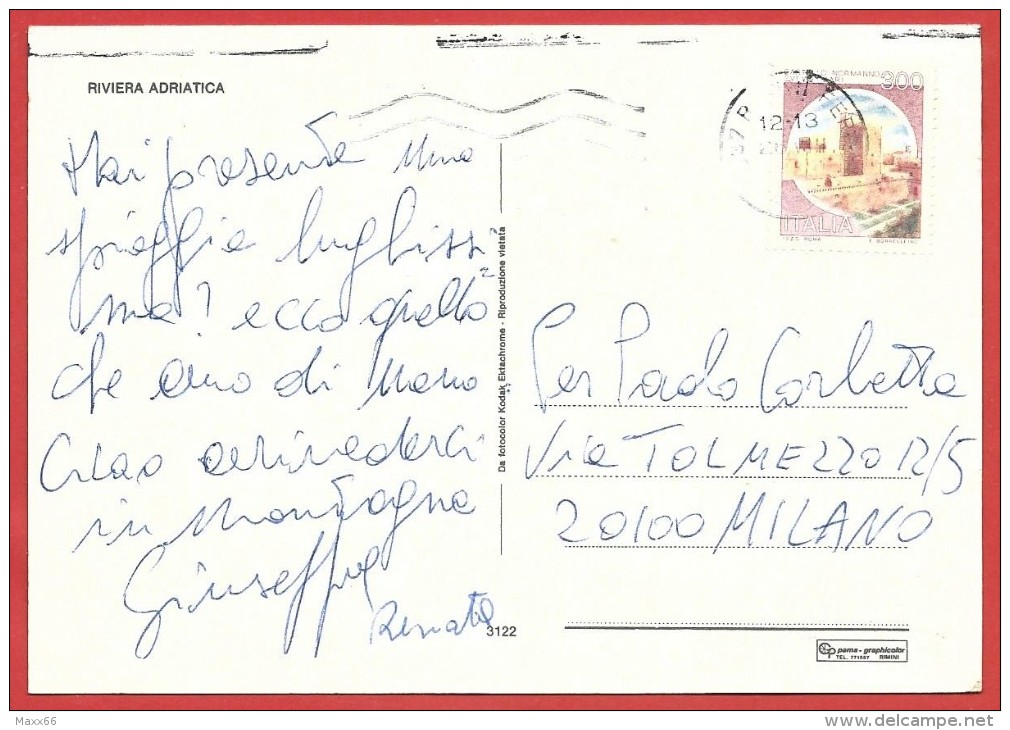 RIVIERA ADRIATICA
Hai presente una
spiaggia lunghissi
ma? ecco quello
che amo di meno
Ciao arrivederci
in montagna
Giuseppe
Renata
Da fotocolor Kodak Ektachrome - Riproduzione vietata
3122
300
12-13
ITALIA
I.P.Z.S. ROMA
Per Paolo Corbetta
Via TOLMEZZO 12/5
20100 MILANO
pama-graphicolor
TEL. 771557 RIMINI
Maxx66
www.delcampe.net